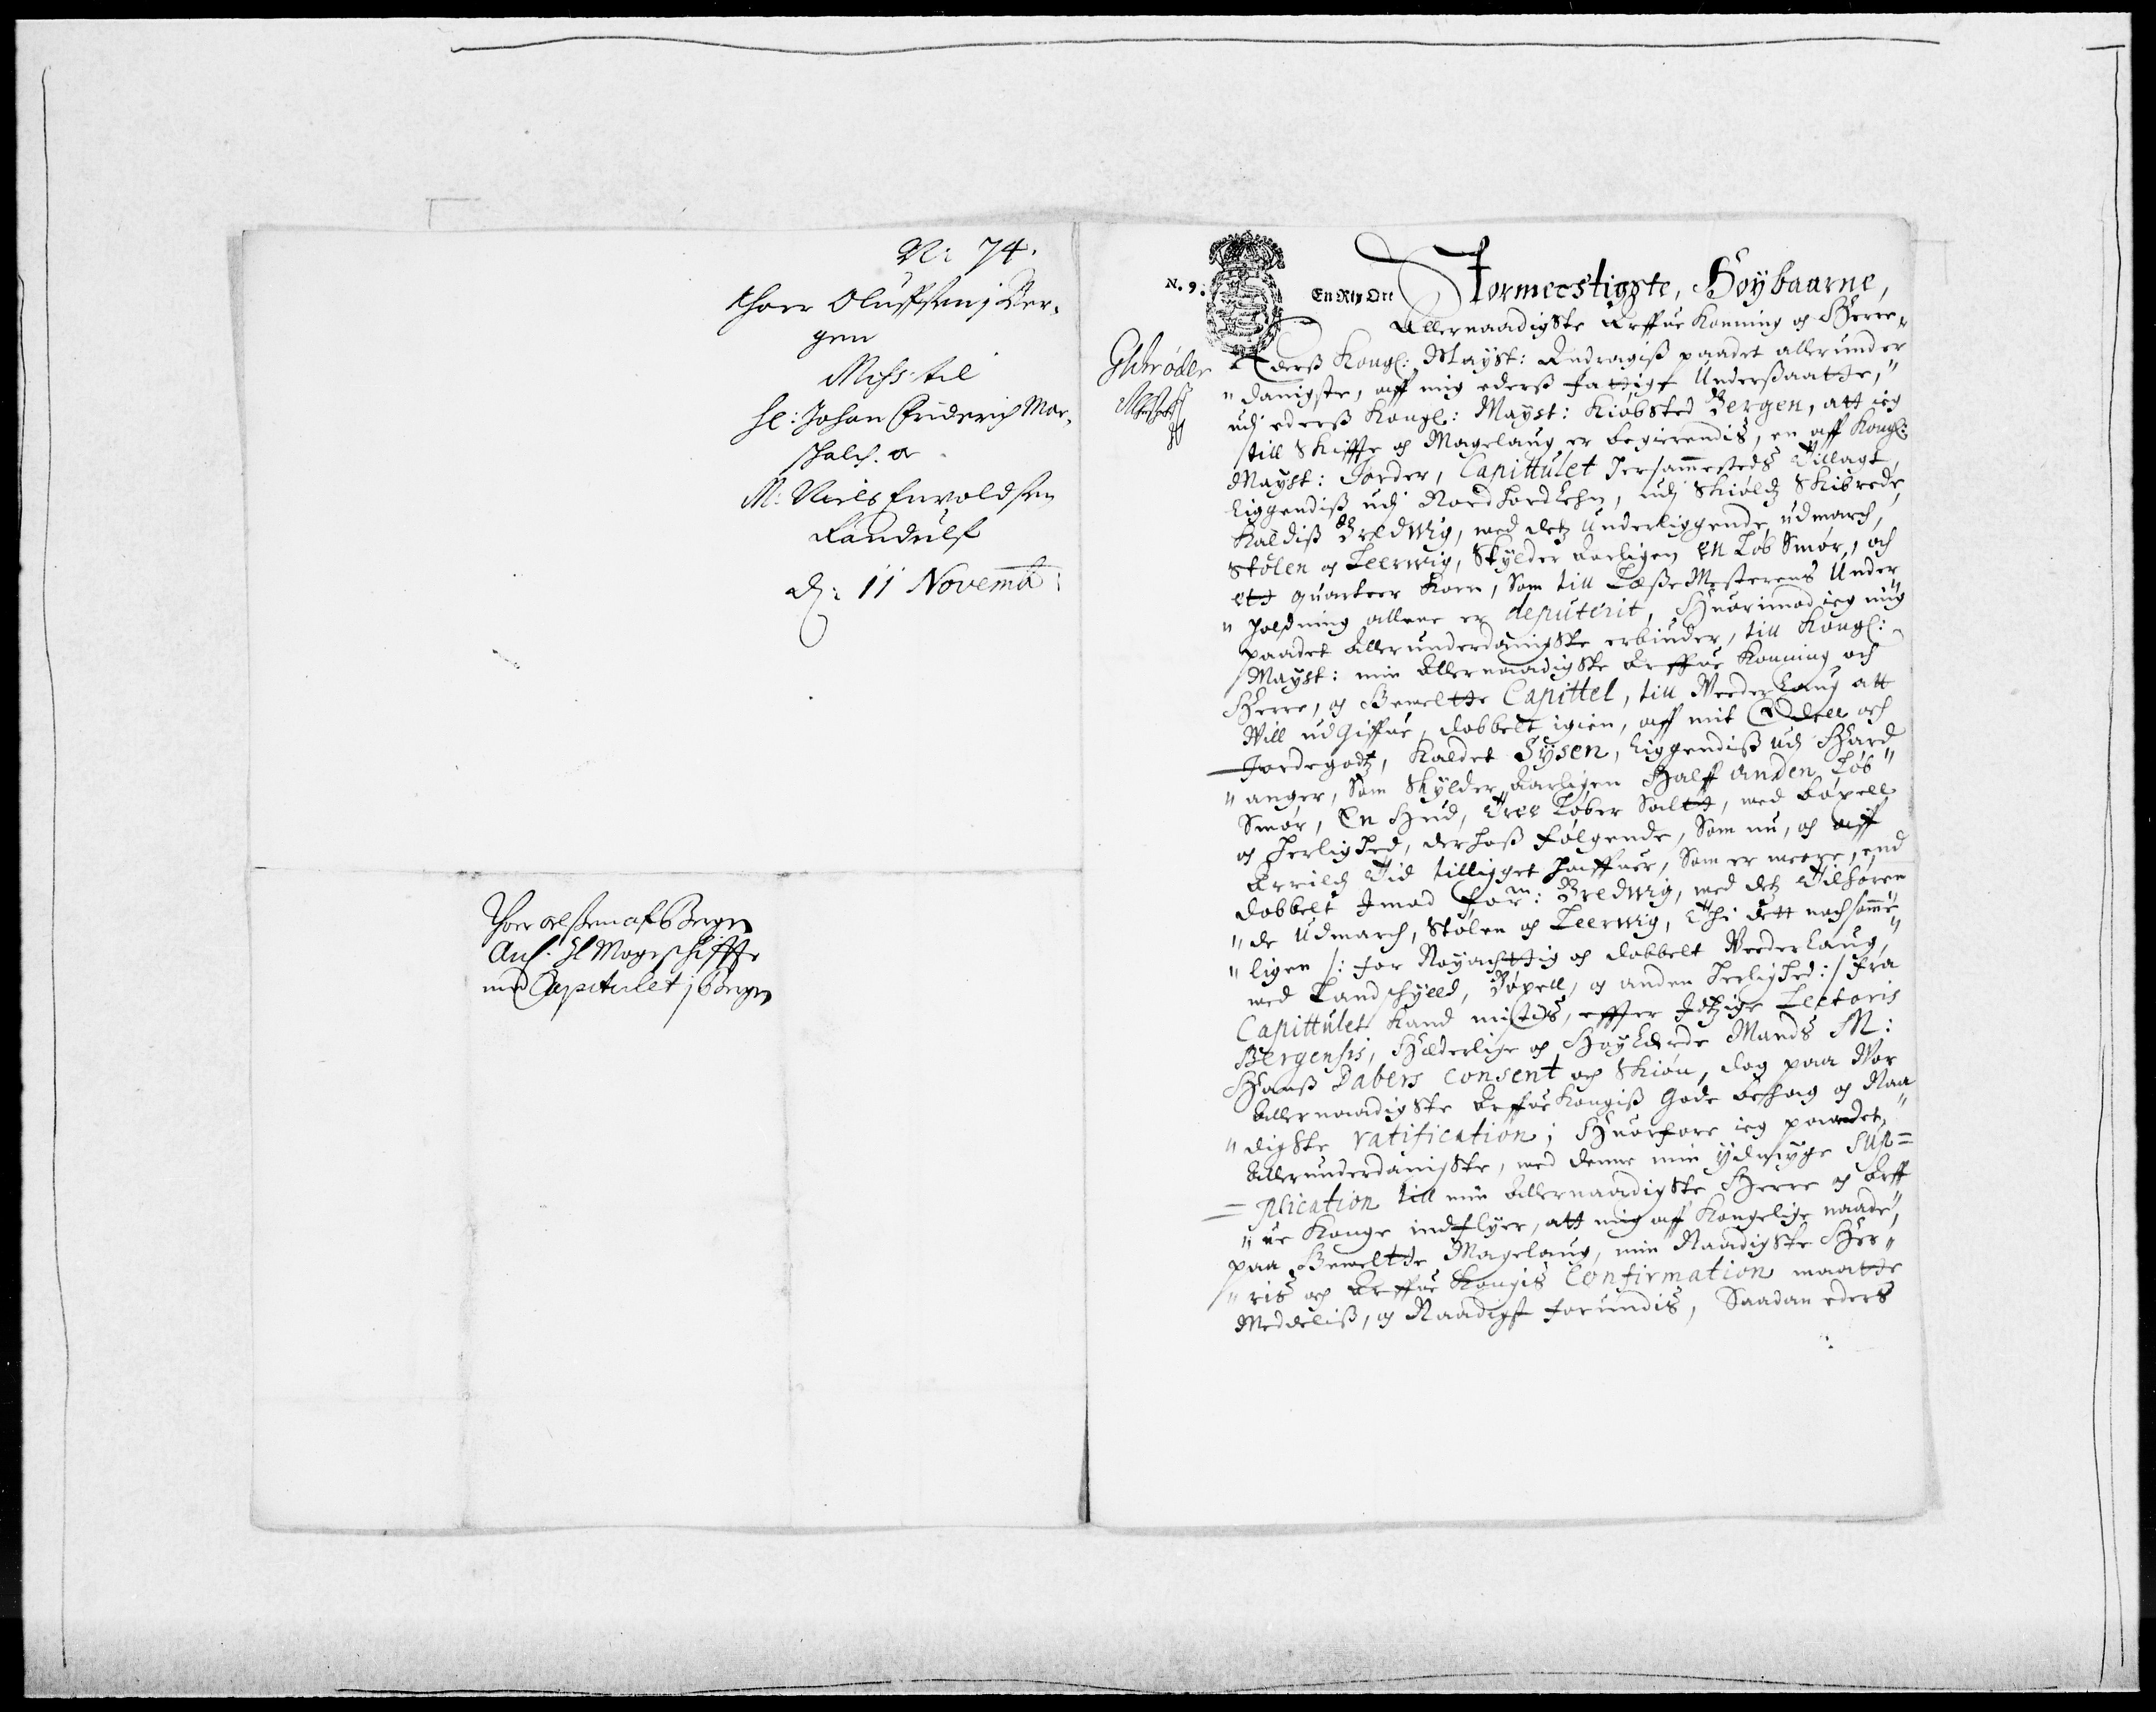 N: 74.
Thoer Oluffsen i Ber¬
gen
Miss: til
Hr: Johan Friderich Mar¬
schalch. o
M: Niels Envoldsen
Randulf
d: 11 Novemb:
Thoer Olssen af Bergen
Anl. Et Mageschiffte
med Capitulet i Bergen
N. 9.
En Rix Ort
Stormecstigste, Høybaarne,
Allernaadigste Arffue Konning og Herre,
Ederß Kongl: Mayst: Andragiß paadet allerunder
"danigste, aff mig ederß fattigt Underßaatte,"
udj ederß Kongl: Mayst: Kiøbsted Bergen, att ieg
till Skiffte og Magelaug er begierendis, en aff Kongl:
Mayst: Jorder, Capittulet hersammesteds Tillagt,
liggendiß udj Nordhordlehn, udj Skiolds Skibrede,
kaldiß Bredwig, med detz underliggende udmarch,
Stølen og Leerwig, Skylder Aarligen en Løb Smør, och
ett quarteer Korn, Som till Læße Mesterens Under
"holdning allene er deputerit, Huorimod ieg mig
paadet allerunderdanigste erbiuder, till Kongl:
Mayst: min Allernaadigste Arffue Konning och
Herre, og Bemelte Capittel, till Wederlaug att
Will udgiffue, dobbelt igien, aff mit Odell och
Jordegodtz, kaldet Sysen, liggendiß udj Hard
"anger, Som Skylder Aarligen Halff anden Løb"
Smør, En Hud, Tree Løber Saltt, med Bøxell
og herlighed, derhoß følgende, Som nu, og aff
Arrilds Tid tilligget haffuer, Som er meere, end
dobbelt Imod forn: Bredwig, med detz Tilhøren
"de Udmarch, Stølen og Leerwig, Thi dett nochsomme"
"ligen /: for Nøyachttig og dobbelt Wederlaug,"
med Landschylld, Bøxell, og anden herlighed:/ fra
Capittulet kand mistis, effter Itzige Lectoris
Bergensis, Hæderlige og Høylærde Mands M:
Hanß Dabers consent och Skiøn, dog paa Wor
Allernaadigste Arffue Kongiß Gode behag og Naa
"digste ratification; Huorfore ieg paadet,"
Allerunderdanigste, med denne min ydmyge Sup=
=plication till min Allernaadigste Herre og Arff
"ue Konge indflyer, att mig aff Kongelige naade,"
paa Bemeltte Magelaug, min Naadigste Her"
"ris och Arffue Kongis Confirmation maatte
Meddeliß, og Naadigst forundis, Saadan eders